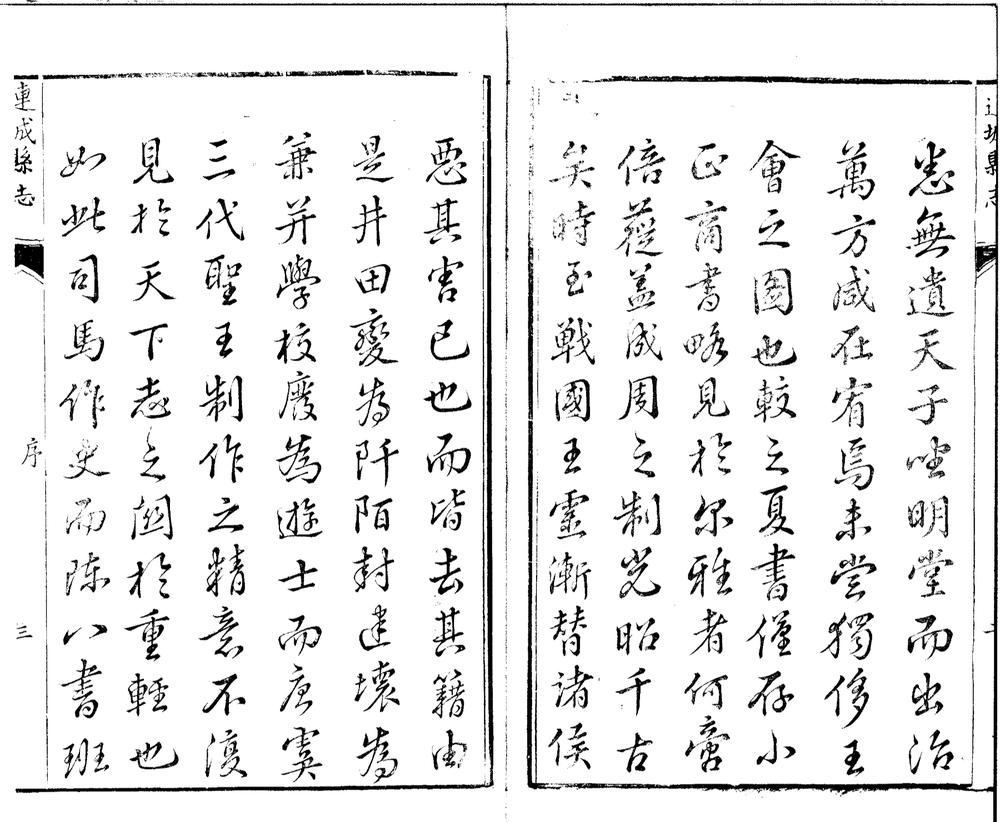 悉無遺天子坐明堂而出治
萬方咸在宥焉未嘗獨侈王
會之圖也較之夏書僅存小
正商書略見於尔雅者何啻
倍蓰蓋成周之制光昭千古
矣時至戰國王靈漸替諸侯
惡其害已也而皆去其籍由
是井田變為阡陌封建壞為
兼并學校廢為遊士而唐虞
三代聖王制作之精意不復
見於天下志之関於重輕也
如此司馬作史而陳八書班
連城縣志
序
三